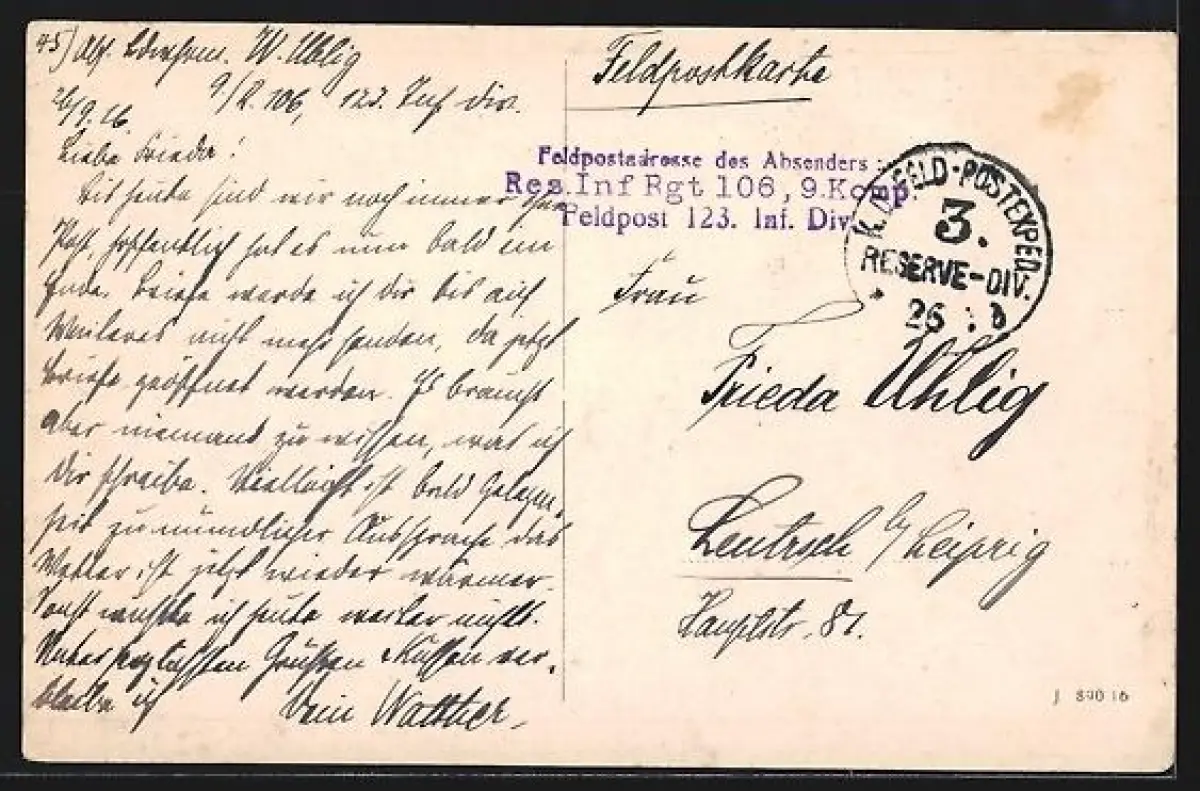 45) Abs. Ldwehrm. W. Uhlig
9/R. 106, 123. Inf. Div.
26/9.16.
Liebe Frieda!
Bis heute sind wir noch immer ohne
Post, hoffentlich hat es nun bald ein
Ende. Briefe werde ich dir bis auf
Weiteres nicht mehr senden, da jetzt
Briefe geöffnet werden. Es braucht
aber niemand zu wissen, was ich
dir schreibe. Vielleicht ist bald Gelegen-
heit zu mündlicher Aussprache das
Wetter ist jetzt wieder wärmer.
Sonst wüßte ich heute weiter nichts.
Unter herzlichsten Grüßen & Küssen ver-
bleibe ich Dein Walther.
Feldpostkarte
Feldpostadresse des Absenders:
Res. Inf Rgt 106, 9. Komp.
Feldpost 123. Inf. Div.
K. D. FELD-POSTEXPED.
3.
RESERVE-DIV.
26
Frau
Frieda Uhlig
Leutzsch b/Leipzig
Hauptstr. 81.
J 890 16